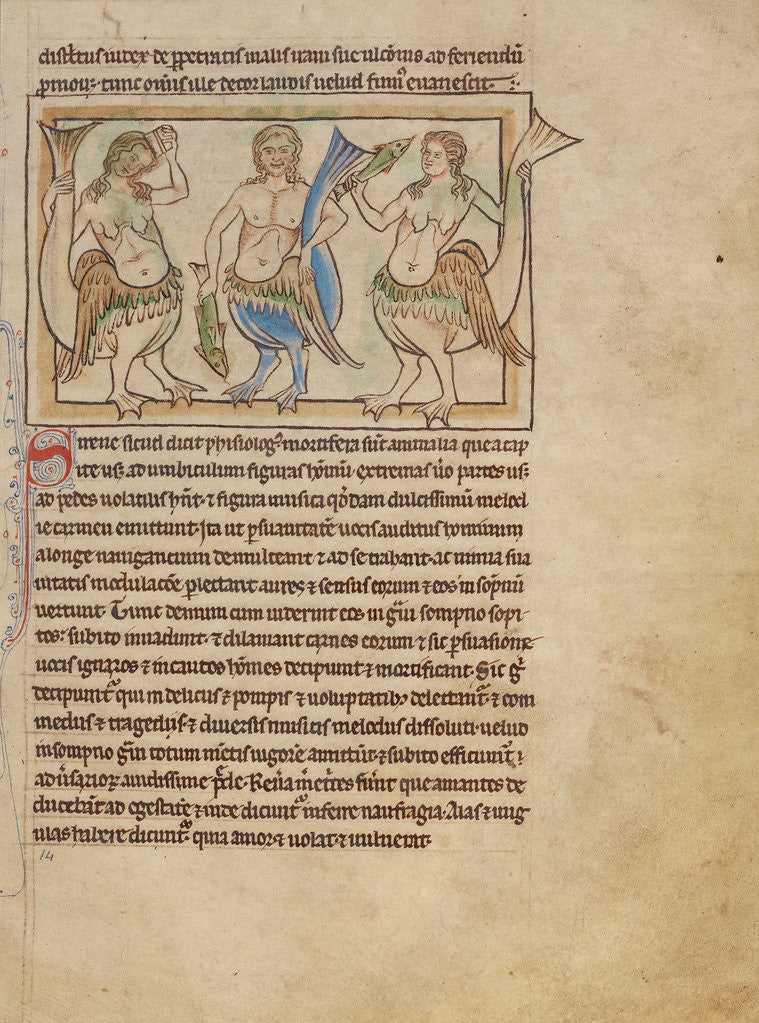 districtus iudex de ꝑpetratis malis iram sue ulc̄onis ad feriendū
ꝓmou&; tunc om̄is ille decor laudis uelud fum᷒ euanescit.
Sirene sicud dicit phisiolog᷒ mortifera sūt animalia que a cap
ite us; ad umbiculum figuras hōmū. extremas ūo partes us;
ad pedes uolatilis hn̄t. ⁊ figura musica q̄ddam dulcissimū melod
ie carmen emittunt. Ita ut ꝑ suauitatē uocis auditus hominum
a longe nauigancium demulceant ⁊ ad se trahant. ac nimia sua
uitatis modulac̄oe ꝑlectant aures ⁊ sensus eorum ⁊ eos in sop̄nū
uertunt. Tunc demum cum uiderint eos in g̈ui sompno sopi
tos: subito inuadunt. ⁊ dilaniant carnes eorum ⁊ sic ꝑsuasione
uocis ignaros ⁊ incautos hōīes decipiunt ⁊ mortificant. Sic g̊
decipiunt᷒ qui in deliciis ⁊ pompis ⁊ uoluptatib; delectant᷒. ⁊ com
mediis ⁊ tragediis. ⁊ diuersis musicis melodiis dissoluti. uelud
in sompno g̈ui totum m̄tis uigorē amittūt. ⁊ subito efficiunt᷒ ī
adūsarioꝝ auidissime p̄de.
ducebāt ad egestatē ⁊ inde dicunt᷒ inferre naufragia. Alas ⁊ ung
ulas habere dicunt᷒. quia amor ⁊ uolat ⁊ uulnerat.
14